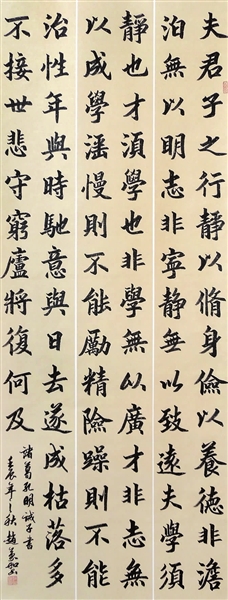 夫君子之行靜以脩身儉以養德非澹
泊無以明志非寧静無以致遠夫學須
靜也才湏學也非學無以廣才非志無
以成學滛慢則不能勵精險躁則不能
治性年與時馳意與日去遂成枯落多
不接世悲守窮廬將復何及
諸葛孔明诫子書
壬辰年之秋趙